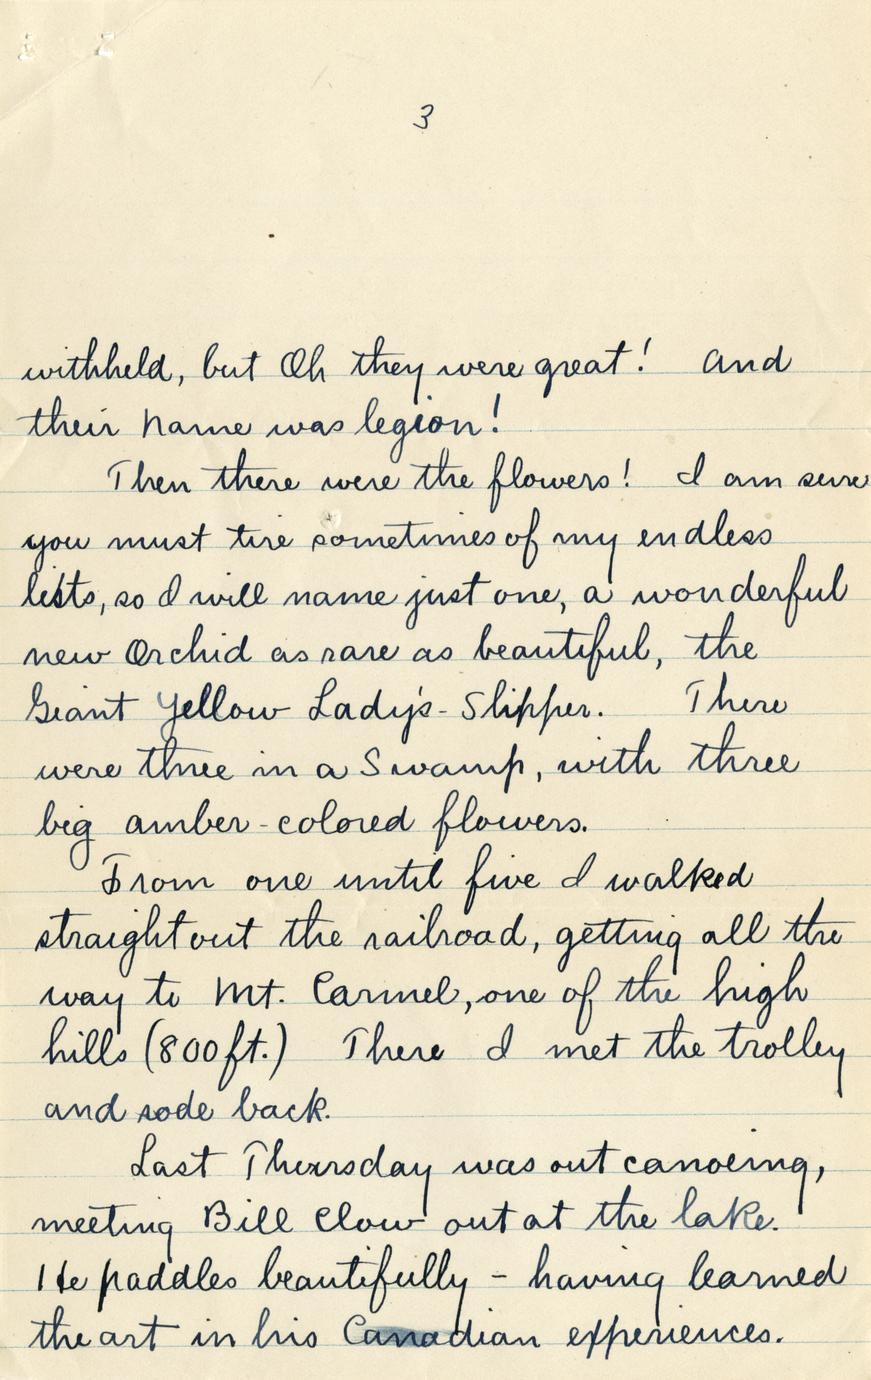 3
withheld, but Oh they were great! And
their name was legion!
Then there were the flowers! I am sure
you must tire sometimes of my endless
lists, so I will name just one, a wonderful
new Orchid as rare as beautiful, the
Giant Yellow Lady's-Slipper. There
were three in a Swamp, with three
big amber-colored flowers.
From one until five I walked
straight out the railroad, getting all the
way to Mt. Carmel, one of the high
hills (800 ft.) There I met the trolley
and rode back.
Last Thursday was out canoeing,
meeting Bill Clow out at the lake.
He paddles beautifully - having learned
the art in his Canadian experiences.